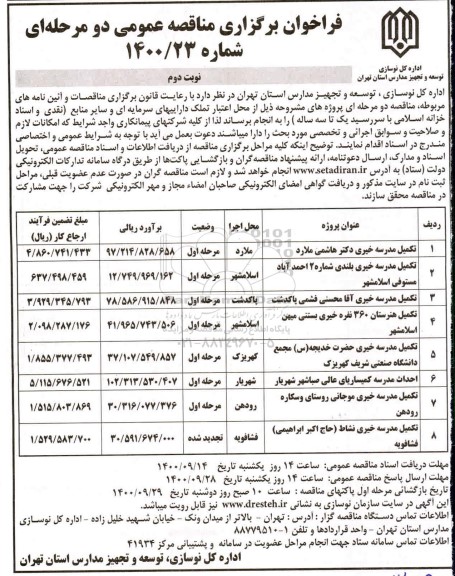 فراخوان برگزاری مناقصه عمومی دو مرحله‌ای
شماره ۱۴۰۰/۲۳
اداره کل نوسازی
توسعه و تجهیز مدارس استان تهران
نوبت دوم
اداره کل نوسازی ، توسعه و تجهیز مدارس استان تهران در نظر دارد با رعایت قانون برگزاری مناقصات و آئین نامه های
مربوطه، مناقصه دو مرحله ای پروژه های مشروحه ذیل از محل اعتبار تملک داراییهای سرمایه ای و سایر منابع (نقدی و اسناد
خزانه اسلامی با سررسید یک تا سه ساله ) را به انجام برساند لذا از کلیه شرکتهای پیمانکاری واجد شرایط که امکانات لازم
و صلاحیت و سوابق اجرائی و تخصصی مورد بحث را دارا میباشند دعوت بعمل می آید با توجه به شرایط عمومی و اختصاصی
مندرج در اسناد اقدام نمایند. توضیح اینکه کلیه مراحل برگزاری مناقصه از دریافت اطلاعات و اسناد مناقصه عمومی، تحویل
اسناد و مدارک، ارسال دعوتنامه، ارائه پیشنهاد مناقصه‌گران و بازگشایی پاکت‌ها از طریق درگاه سامانه تدارکات الکترونیکی
دولت (ستاد) به آدرس www.setadiran.ir انجام خواهد شد و لازم است مناقصه گران در صورت عدم عضویت قبلی، مراحل
ثبت نام در سایت مذکور و دریافت گواهی امضای الکترونیکی صاحبان امضاء مجاز و مهر الکترونیکی شرکت را جهت مشارکت
در مناقصه محقق سازند.
ردیف عنوان پروژه محل اجرا وضعیت برآورد ریالی مبلغ تضمین فرآیند ارجاع کار (ریال)
۱ تکمیل مدرسه خیری دکتر هاشمی ملارد ملارد مرحله اول ۹۷/۲۱۴/۸۲۸/۶۵۸ ۴/۸۶۰/۷۴۱/۴۳۳
۲ تکمیل مدرسه خیری بلندی شماره۲ احمد آباد مستوفی اسلامشهر اسلامشهر مرحله اول ۱۲/۷۴۹/۹۶۹/۱۶۳ ۶۳۷/۴۹۸/۴۵۹
۳ تکمیل مدرسه خیری آقا محسنی فشمی پاکدشت پاکدشت مرحله اول ۷۸/۵۸۶/۹۱۵/۸۴۸ ۳/۹۲۹/۳۴۵/۷۹۳
۴ تکمیل هنرستان ۳۶۰ نفره خیری بستنی میهن اسلامشهر اسلامشهر مرحله اول ۴۱/۹۶۵/۷۴۳/۵۰۶ ۲/۰۹۸/۲۸۷/۱۷۶
۵ تکمیل مدرسه خیری حضرت خدیجه(س) مجمع دانشگاه صنعتی شریف کهریزک کهریزک مرحله اول ۳۷/۱۰۷/۵۴۹/۸۵۷ ۱/۸۵۵/۳۷۷/۴۹۳
۶ احداث مدرسه کمیساریای عالی صباشهر شهریار شهریار مرحله اول ۱۰۲/۳۱۳/۵۳۰/۴۰۷ ۵/۱۱۵/۶۷۶/۵۲۱
۷ تکمیل مدرسه خیری موجانی روستای وسکاره رودهن رودهن مرحله اول ۳۰/۳۱۶/۰۷۷/۳۷۶ ۱/۵۱۵/۸۰۳/۸۶۹
۸ تکمیل مدرسه خیری نشاط (حاج اکبر ابراهیمی) فشافویه فشافویه تجدید شده ۳۰/۵۹۱/۶۷۴/۰۰۰ ۱/۵۲۹/۵۸۳/۷۰۰
مهلت دریافت اسناد مناقصه عمومی: ساعت ۱۴ روز یکشنبه تاریخ ۱۴۰۰/۰۹/۱۴
مهلت ارسال پاسخ مناقصه عمومی: ساعت ۱۴ روز یکشنبه تاریخ ۱۴۰۰/۰۹/۲۸
تاریخ بازگشائی مرحله اول پاکتهای مناقصه : ساعت ۱۰ صبح روز دوشنبه تاریخ ۱۴۰۰/۰۹/۲۹
این آگهی در سایت سازمان نوسازی به نشانی www.dresteh.ir نیز قابل رویت میباشد.
اطلاعات تماس دستگاه مناقصه گزار : آدرس : تهران - بالاتر از میدان ونک - خیابان شهید خلیل زاده - اداره کل نوسازی
مدارس استان تهران - واحد قراردادها و تلفن ۱-۸۸۷۷۹۵۱۰
اطلاعات تماس سامانه ستاد جهت انجام مراحل عضویت در سامانه و پشتیبانی مرکز ۴۱۹۳۴
اداره کل نوسازی، توسعه و تجهیز مدارس استان تهران